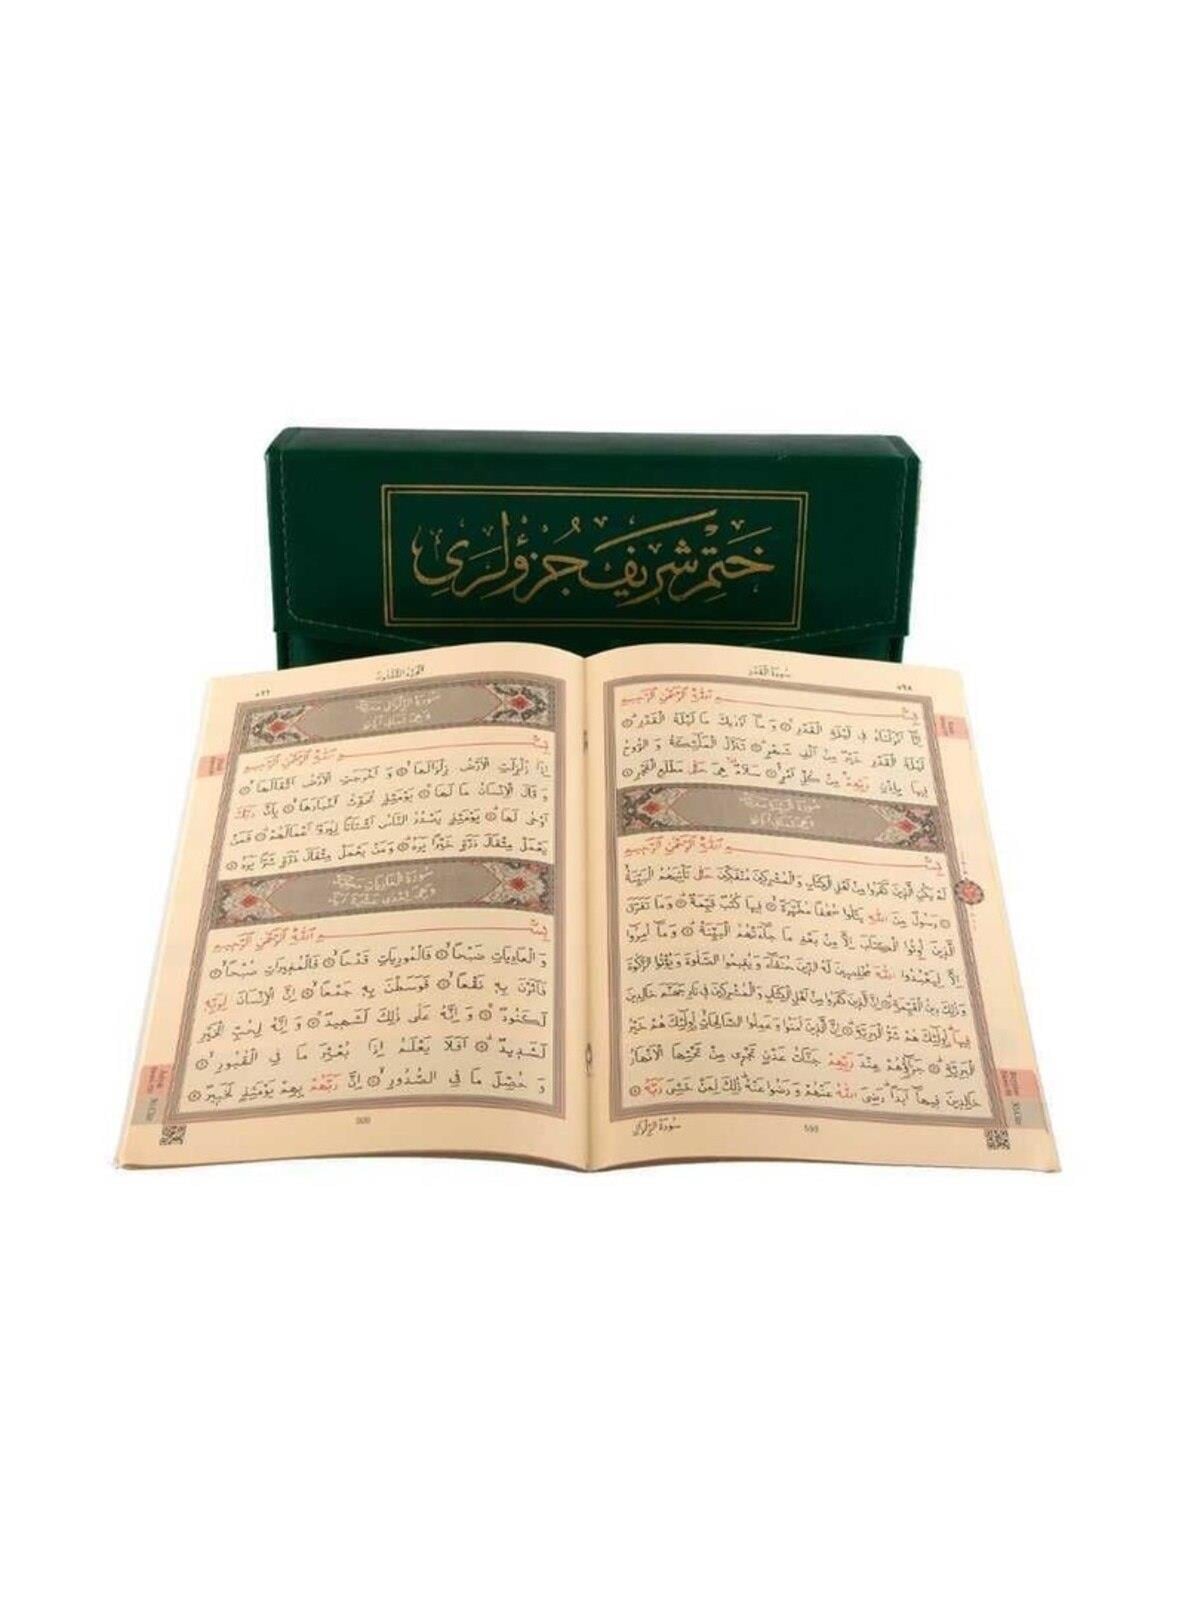 ختم شريف جزؤلرى
سورة القدر
٥٩٨
بِسْمِ اللّٰهِ الرَّحْمٰنِ الرَّحِيمِ
اِنَّٓا اَنْزَلْنَاهُ فِي لَيْلَةِ الْقَدْرِ ۝١ وَمَٓا اَدْرٰيكَ مَا لَيْلَةُ الْقَدْرِ ۝٢
لَيْلَةُ الْقَدْرِ خَيْرٌ مِنْ اَلْفِ شَهْرٍ ۝٣ تَنَزَّلُ الْمَلٰٓئِكَةُ وَالرُّوحُ
فِيهَا بِاِذْنِ رَبِّهِمْ مِنْ كُلِّ اَمْرٍ ۝٤ سَلَامٌ هِيَ حَتّٰى مَطْلَعِ الْفَجْرِ ۝٥
بِسْمِ اللّٰهِ الرَّحْمٰنِ الرَّحِيمِ
لَمْ يَكُنِ الَّذِينَ كَفَرُوا مِنْ اَهْلِ الْكِتَابِ وَالْمُشْرِكِينَ مُنْفَكِّينَ حَتّٰى تَأْتِيَهُمُ الْبَيِّنَةُ
۝١ رَسُولٌ مِنَ اللّٰهِ يَتْلُوا صُحُفًا مُطَهَّرَةً ۝٢ فِيهَا كُتُبٌ قَيِّمَةٌ ۝٣ وَمَا تَفَرَّقَ
الَّذِينَ اُوتُوا الْكِتَابَ اِلَّا مِنْ بَعْدِ مَا جَٓاءَتْهُمُ الْبَيِّنَةُ ۝٤ وَمَٓا اُمِرُٓوا
اِلَّا لِيَعْبُدُوا اللّٰهَ مُخْلِصِينَ لَهُ الدِّينَ حُنَفَٓاءَ وَيُقِيمُوا الصَّلٰوةَ وَيُؤْتُوا الزَّكٰوةَ
وَذٰلِكَ دِينُ الْقَيِّمَةِ ۝٥ اِنَّ الَّذِينَ كَفَرُوا مِنْ اَهْلِ الْكِتَابِ وَالْمُشْرِكِينَ فِي نَارِ جَهَنَّمَ خَالِدِينَ
فِيهَا اُولٰٓئِكَ هُمْ شَرُّ الْبَرِيَّةِ ۝٦ اِنَّ الَّذِينَ اٰمَنُوا وَعَمِلُوا الصَّالِحَاتِ اُولٰٓئِكَ هُمْ خَيْرُ
الْبَرِيَّةِ ۝٧ جَزَٓاؤُهُمْ عِنْدَ رَبِّهِمْ جَنَّاتُ عَدْنٍ تَجْرِي مِنْ تَحْتِهَا الْاَنْهَارُ
خَالِدِينَ فِيهَٓا اَبَدًا رَضِيَ اللّٰهُ عَنْهُمْ وَرَضُوا عَنْهُ ذٰلِكَ لِمَنْ خَشِيَ رَبَّهُ ۝٨
سورة الزلزال
سُورَةُ الزِّلْزَالِ
بِسْمِ اللّٰهِ الرَّحْمٰنِ الرَّحِيمِ
اِذَا زُلْزِلَتِ الْاَرْضُ زِلْزَالَهَا ۝١ وَاَخْرَجَتِ الْاَرْضُ اَثْقَالَهَا ۝٢
وَقَالَ الْاِنْسَانُ مَا لَهَا ۝٣ يَوْمَئِذٍ تُحَدِّثُ اَخْبَارَهَا ۝٤ بِاَنَّ رَبَّكَ
اَوْحٰى لَهَا ۝٥ يَوْمَئِذٍ يَصْدُرُ النَّاسُ اَشْتَاتًا لِيُرَوْا اَعْمَالَهُمْ ۝٦ فَمَنْ
يَعْمَلْ مِثْقَالَ ذَرَّةٍ خَيْرًا يَرَهُ ۝٧ وَمَنْ يَعْمَلْ مِثْقَالَ ذَرَّةٍ شَرًّا يَرَهُ ۝٨
سُورَةُ الْعَادِيَاتِ مَكِّيَّةٌ
وَهِيَ اِحْدٰى عَشْرَةَ اٰيَةً
بِسْمِ اللّٰهِ الرَّحْمٰنِ الرَّحِيمِ
وَالْعَادِيَاتِ ضَبْحًا ۝١ فَالْمُورِيَاتِ قَدْحًا ۝٢ فَالْمُغِيرَاتِ صُبْحًا ۝٣
فَاَثَرْنَ بِهِ نَقْعًا ۝٤ فَوَسَطْنَ بِهِ جَمْعًا ۝٥ اِنَّ الْاِنْسَانَ لِرَبِّهِ
لَكَنُودٌ ۝٦ وَاِنَّهُ عَلٰى ذٰلِكَ لَشَهِيدٌ ۝٧ وَاِنَّهُ لِحُبِّ الْخَيْرِ
لَشَدِيدٌ ۝٨ اَفَلَا يَعْلَمُ اِذَا بُعْثِرَ مَا فِي الْقُبُورِ ۝٩
وَحُصِّلَ مَا فِي الصُّدُورِ ۝١٠ اِنَّ رَبَّهُمْ بِهِمْ يَوْمَئِذٍ لَخَبِيرٌ ۝١١